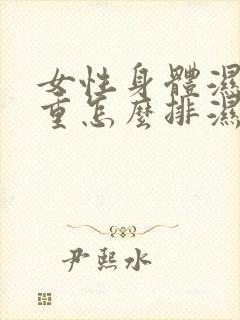 女性身體濕
重怎麼排濕
尹熙水